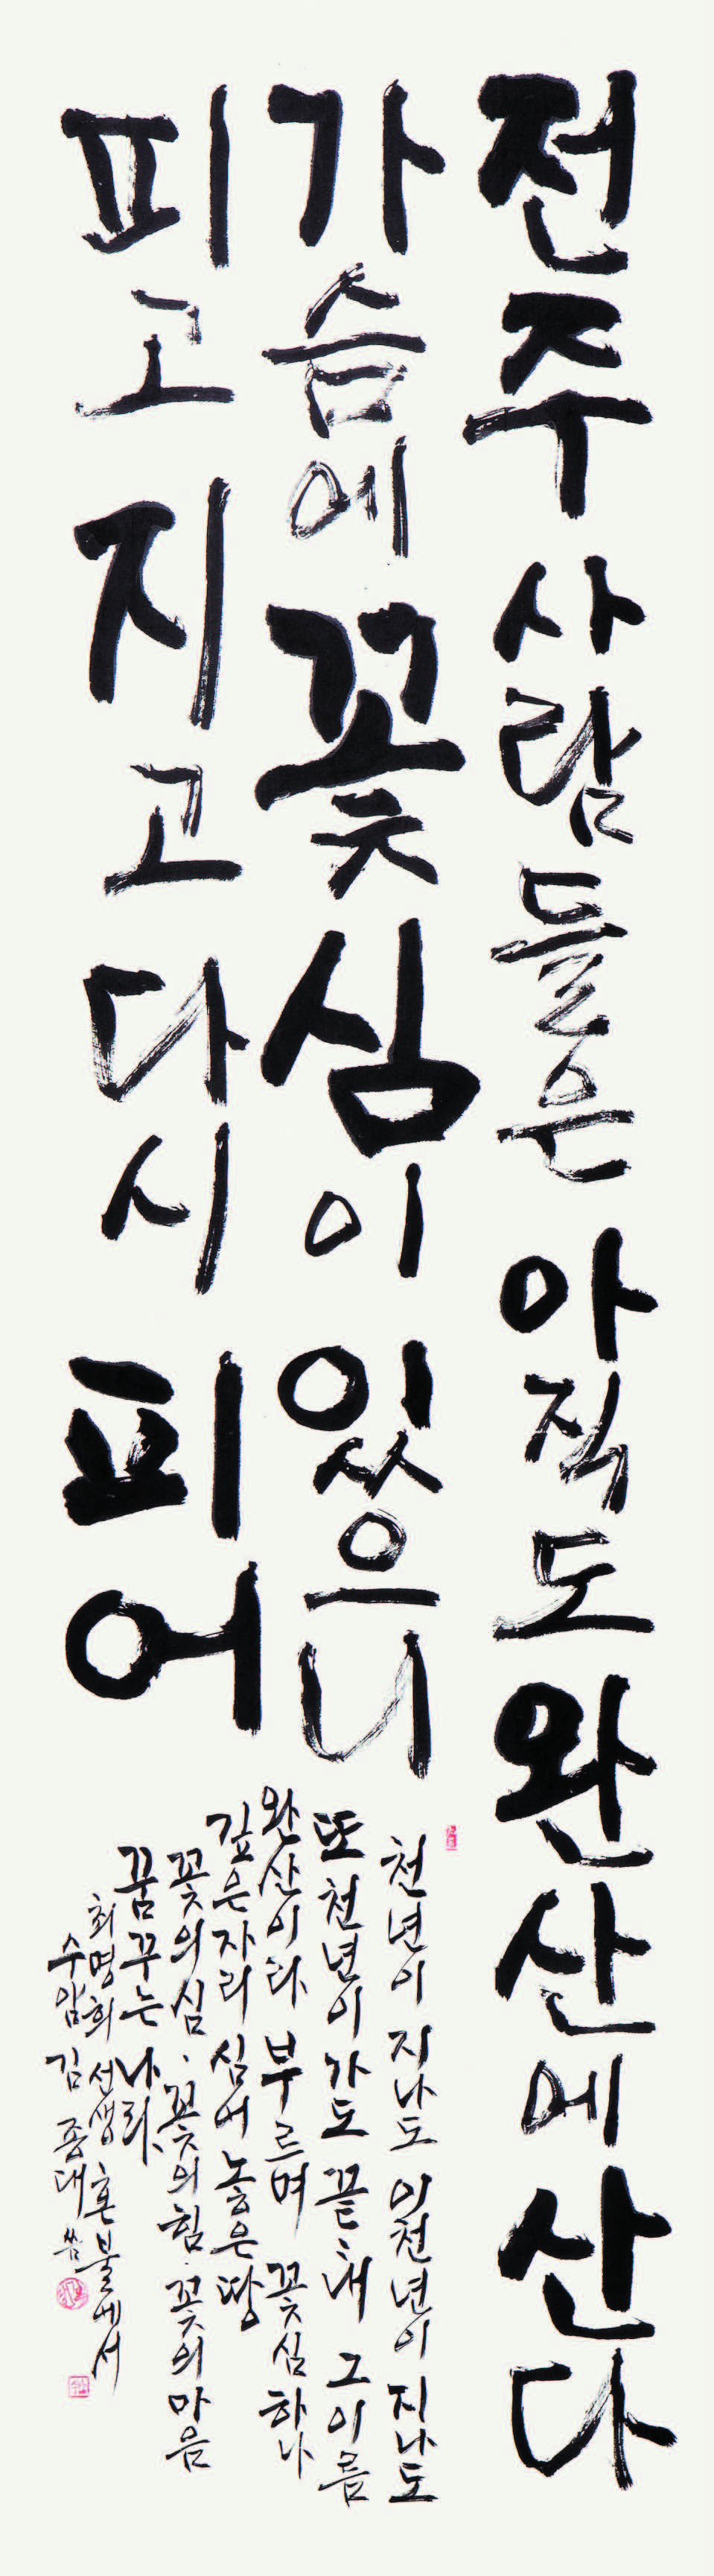 전주 사람들은 아직도 완산에 산다
가슴에 꽃심이 있으니
피고 지고 다시 피어
천년이 지나도 이천년이 지나도
또 천년이 가도 끝내 그 이름
완산이라 부르며 꽃심 하나
깊은 자리 심어 놓은 땅
꽃의 심, 꽃의 힘, 꽃의 마음
꿈꾸는 나라
최명희 선생 혼불에서
수암 김종대 씀